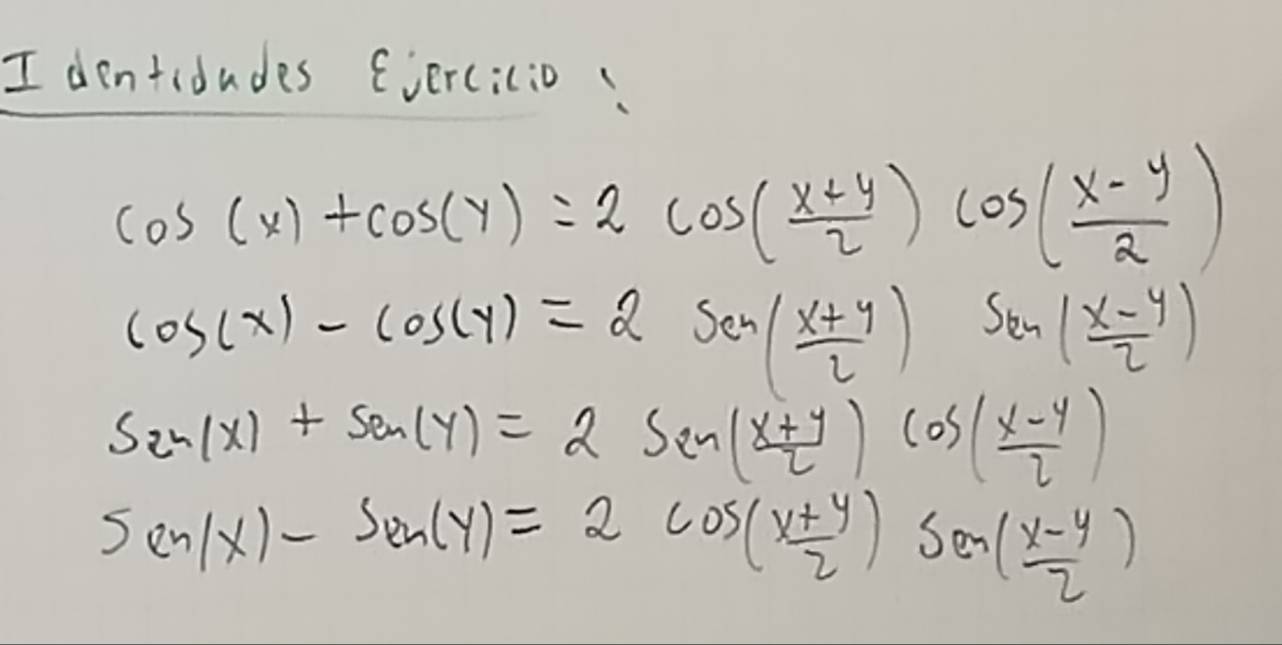 Identidades Ejercicio:
cos (x) + cos(y) = 2 cos(\frac{x+y}{2}) cos(\frac{x-y}{2})
cos(x) - cos(y) = 2 Sen(\frac{x+y}{2}) Sen(\frac{x-y}{2})
Sen(x) + Sen(y) = 2 Sen(\frac{x+y}{2}) cos(\frac{x-y}{2})
Sen(x) - Sen(y) = 2 cos(\frac{x+y}{2}) Sen(\frac{x-y}{2})